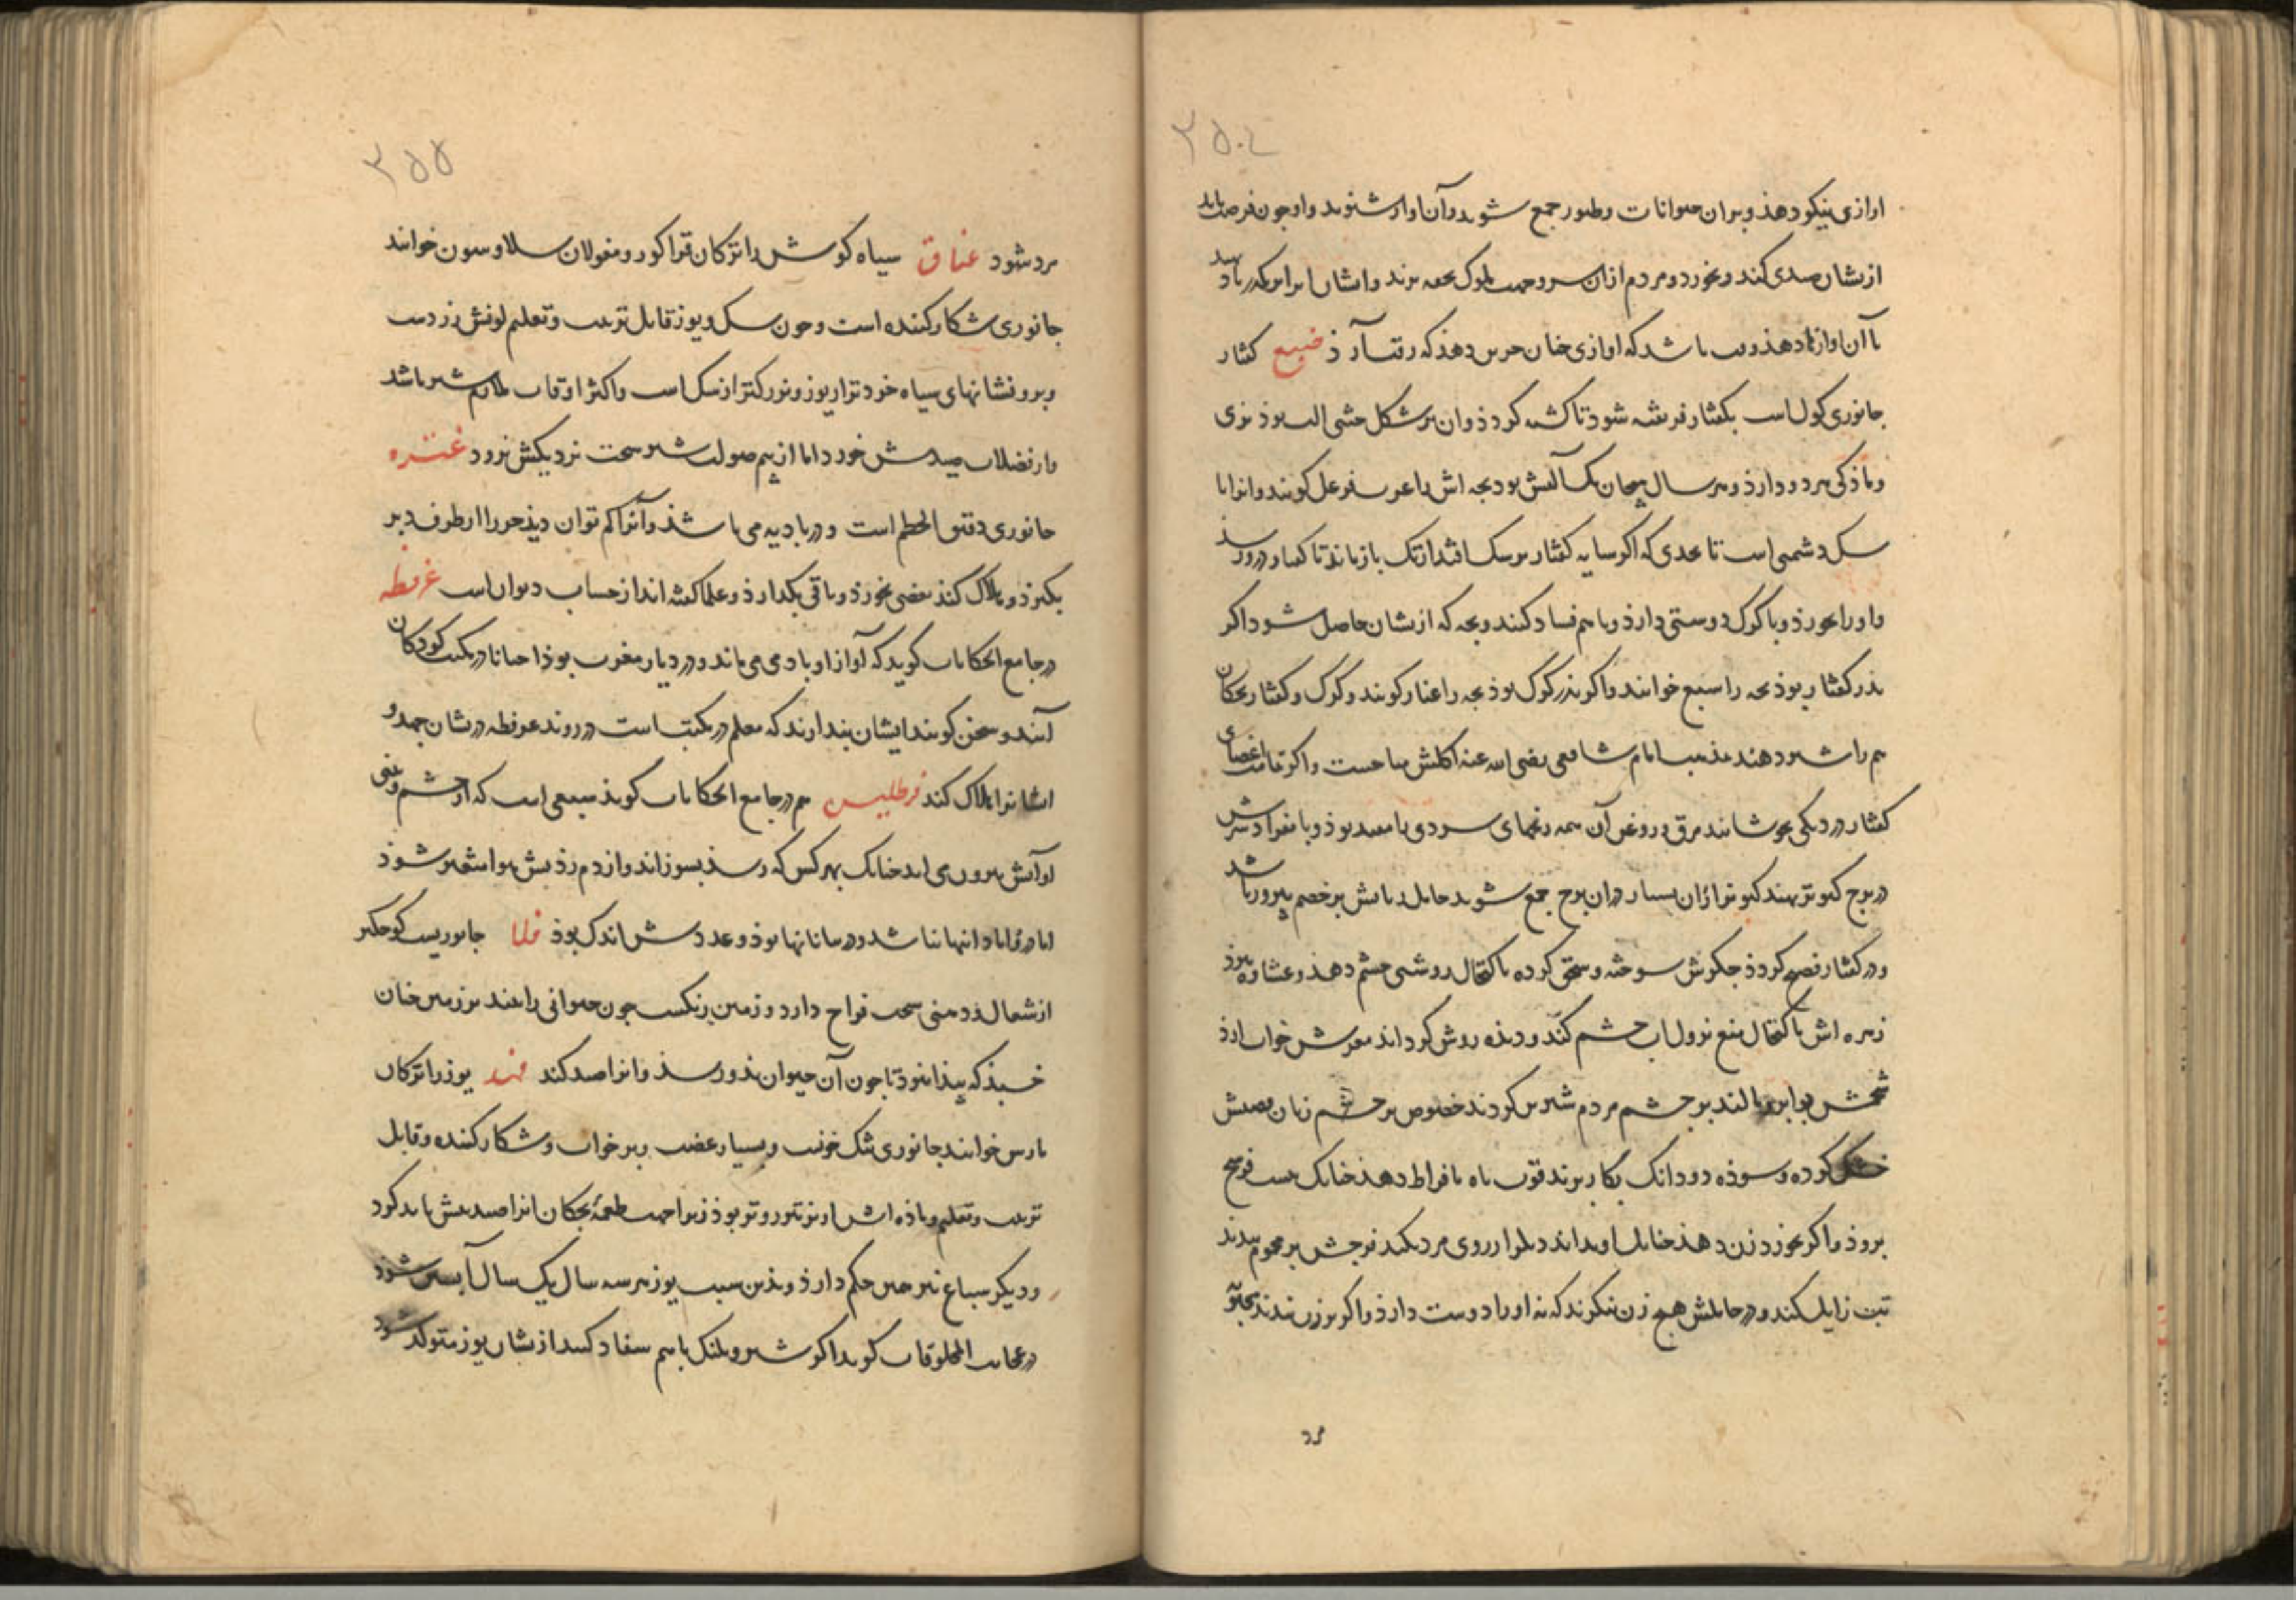 ۳۵۴
اوازی نیکو دهذ و بران حیوانات و طیور جمع شوند و آن اواز شنوند و او چون فرصت یابد
ازیشان صیدی کند و بخورد و مردم ازان سرو جهت ملوک تحفه برند و ایشان را بر
با آن اواز دهذ و باشد که اوازی چنان حزین دهذ که رقت آرذ ضبع کفتار
جانوری کول است بکفتار فریفته شود تا کشته کردذ و ان بر شکل خنثی الت بوذ نری
و ماذکی هر دو دارذ و هر سال یک آلتش بود بچه اش را عرب فرعل کویند و انرا با
سک دشمنی است تا بحدی که اکر سایه کفتار بر سک افتد از تک باز ماند تا کفتار در رسذ
و او را بخورذ و با کرک دوستی دارذ و با هم فساد کنند و بچه که ازیشان حاصل شود اکر
بذر کفتار بوذ بچه را سبع خوانند و اکر بذر کرک بوذ بچه را عبار کویند و کرک و کفتار بچکان
هم را شیر دهند بمذهب امام شافعی رضی الله عنه اکلش مباحست و اکر تمامت اعضای
کفتار در دیکی بجوشانند مرق و روغن آن همه زخمهای سردی را مفید بوذ و بانفراد سرش
در برج کبوتر نهند کبوتران بسیار دران برج جمع شوند حامل دندانش بر خصم پیروز باشد
و در کفتار فصیح کردذ جکرش سوخته و سحق کرده باکتحال روشنی چشم دهذ و عشاوه ببرذ
زهره اش باکتحال منع نزول اب چشم کند و دیذه روشن کرداند مغزش خواب ارذ
شحمش بر ابرو مالند بر چشم مردم شیرین کردند خصوص بر چشم زنان
خشک کرده و سوذه دو دانک بکار برند قوت باه بافراط دهذ چنانک
بروذ و اکر بخورد زن دهند چنانک او بداند دیکر ارزوی مرد نکند فرجش بر محموم بندند
تب زایل کند و در حاملش هیچ زن ننکرند که نه او را دوست دارذ و اکر بر زن بندند
مرد
۳۵۵
مرد شود عناق سیاه کوش را ترکان قرا کور و مغولان سلاوسون خوانند
جانوری شکار کننده است و چون سک و یوز قابل تربیت و تعلیم لونش زردست
و برو نشانهای سیاه خودتر از یوز و بزرکتر از سک است و اکثر اوقات ملازم شیر باشد
و از فضلات صیدش خورد اما از بیم صولت شیر سخت نزدیکش نرود عنتره
جانوری دقیق الخطم است و در بادیه می باشذ و آنرا کم توان دیذ خر را از طرف دبر
بکیرذ و هلاک کند بعضی بخورذ و باقی بکدارذ و علما کفته اند از حساب دیوان است غرفطه
در جامع الحکایات کوید که آواز او بادمی می ماند و در دیار مغرب بوذ احیانا در مکتب کودکان
آیند و سخن کویند ایشان پندارند که معلم در مکتب است در روند غرفطه دریشان جهد و
ایشانرا هلاک کند فرطلیس هم در جامع الحکایات کویذ سبعی است که از چشم و بینی
او آتش بیرون می اید چنانک بهر کس که رسذ بسوزاند و از دم زذنش هوا متغیر شوذ
اما در ابادانیها نباشد و در بیابانها بوذ و عددش اندک بوذ فلا جانوریست کوچکتر
از شغال در منی سخت فواح دارد و زمین رنکست چون حیوانی را بیند بر زمین چنان
خسبذ که پیذا نبوذ تا چون آن حیوان بذو رسذ و انرا صید کند فهد یوز را ترکان
بارس خوانند جانوری تنک خوئیست و بسیار غضب و پر خواب و شکار کننده و قابل
تربیت و تعلیم و ماذه اش از نر تیزروتر بوذ زیرا جهت طعمه بچکان انرا صید بیش باید کرد
و دیکر سباع نیز همین حکم دارذ و بذین سبب یوز هر سه سال یک سال آبستن شوذ
در عجایب المخلوقات کوید اکر شیر و پلنک با هم سفاد کنند ازیشان یوز متولد شود